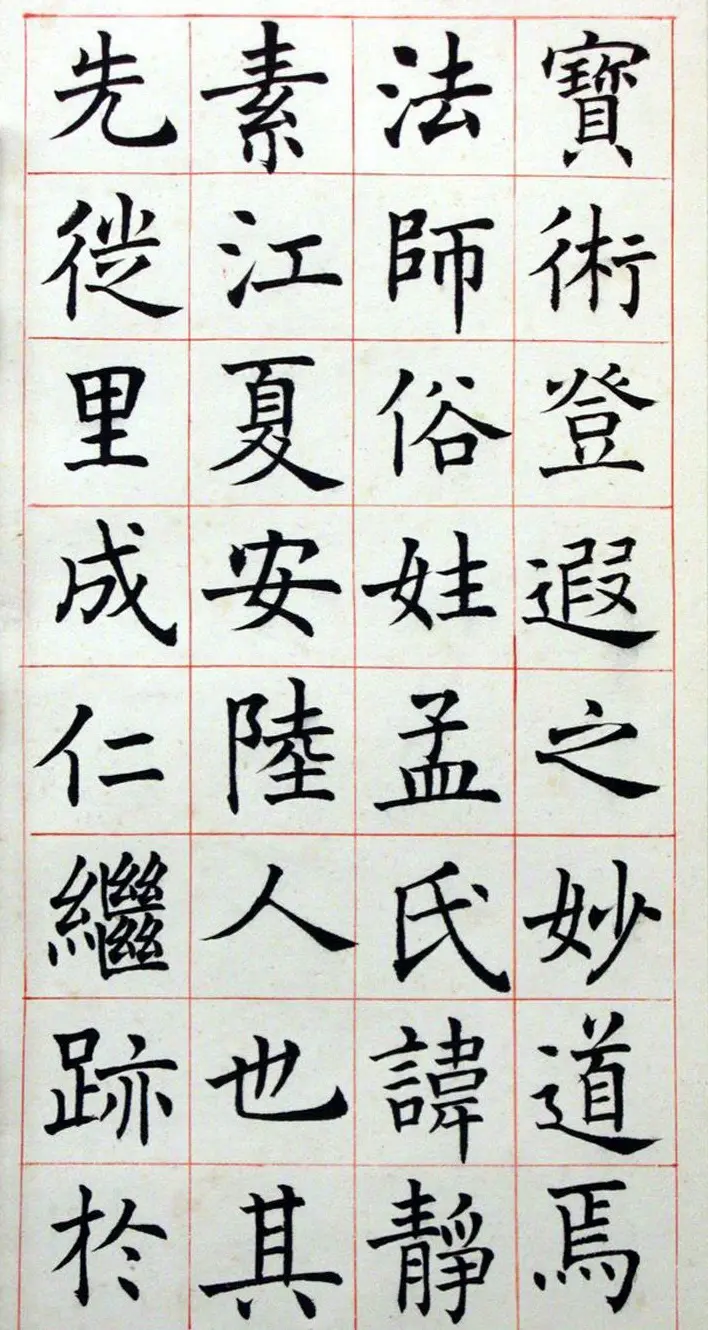 寶術登遐之妙道焉
法師俗姓孟氏諱靜
素江夏安陸人也其
先徙里成仁繼跡於